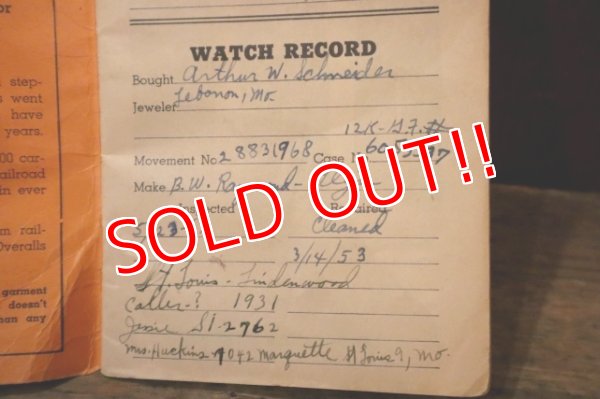 step-
went
have
years.
00 car-
railroad
in ever
rail-
Overalls
garment
doesn't
than any
WATCH RECORD
Bought Arthur W. Schneider
Jeweler Lebanon, Mo.
12K-G.F.
Movement No 28831968 Case N
Make B.W. Raymond - Elgin
Inspected Repaired
5/23 Cleaned
3/14/53
St. Louis - Lindenwood
Caller-? 1931
Jessie St-2762
Mrs. Huckins 7042 Marquette St Louis 9, Mo.
SOLD OUT!!